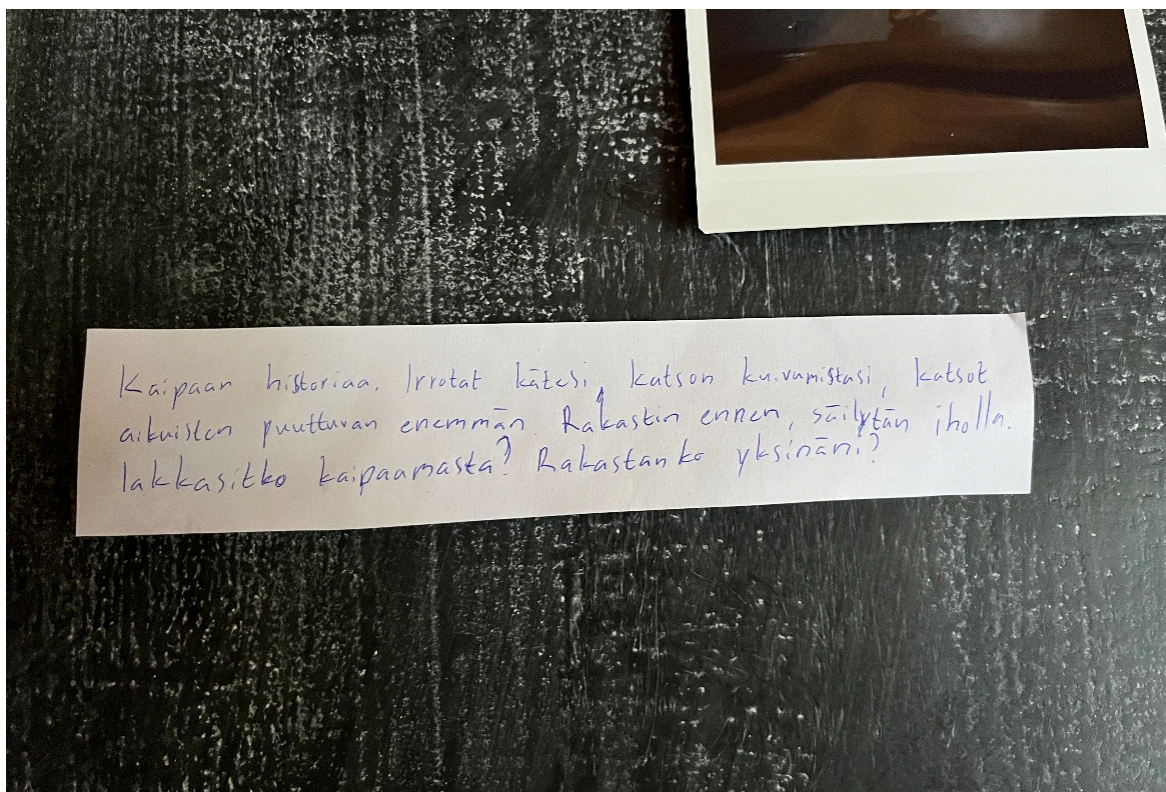 Kaipaan historiaa. Irrotat kätesi, katson kuivumistasi, katsot
aikuisten puuttuvan enemmän. Rakastin ennen, säilytän iholla.
lakkasitko kaipaamasta? Rakastanko yksinäni?